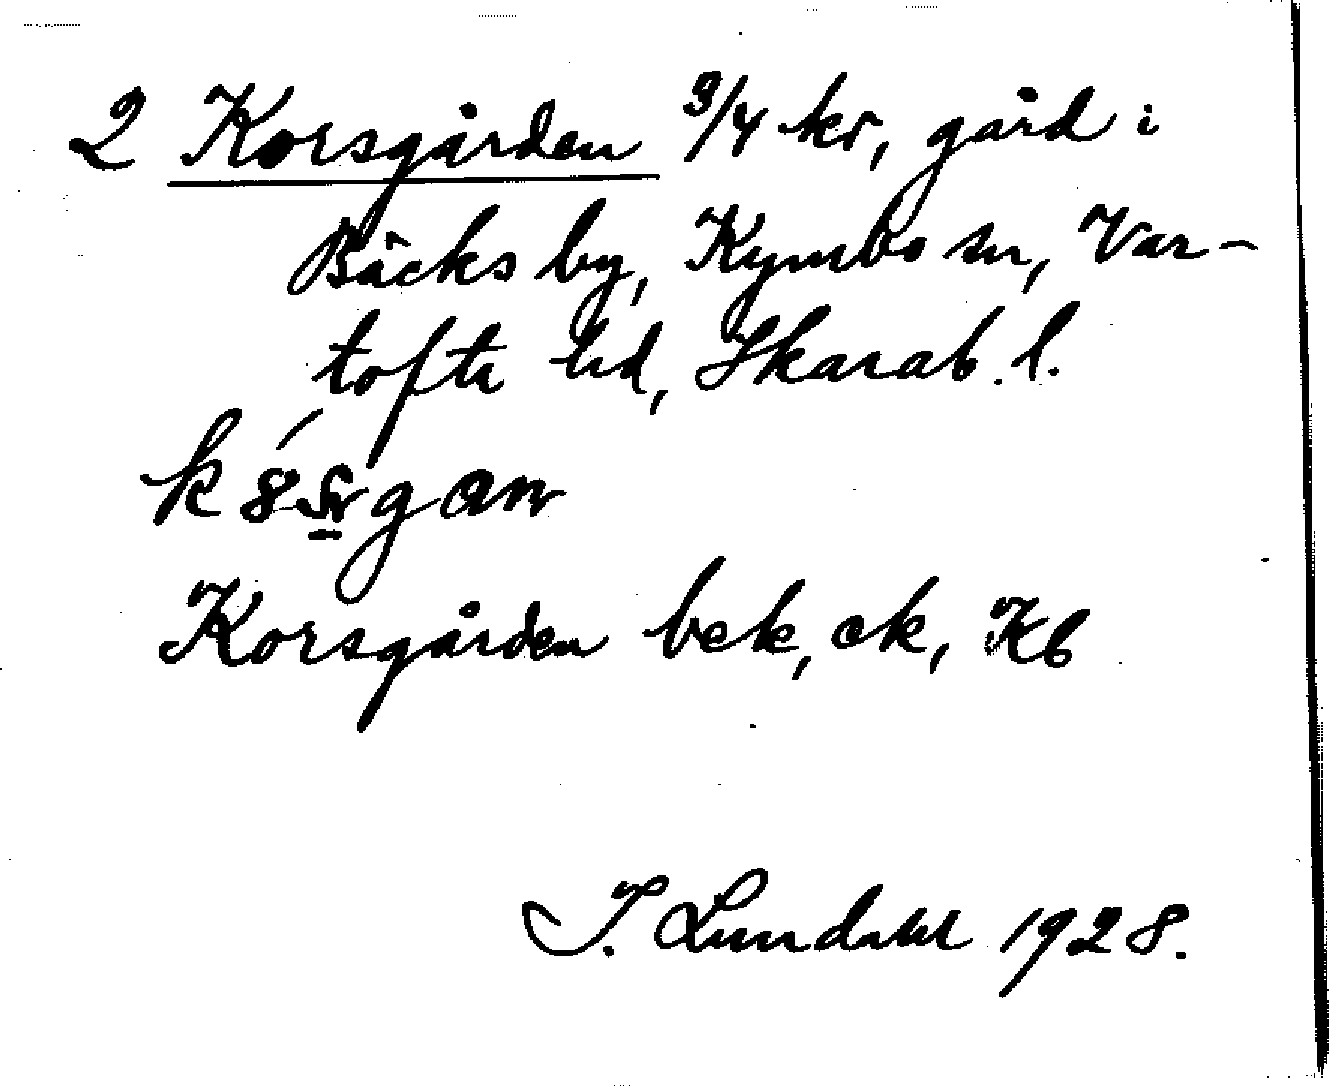 2 Korsgården 3/4 kr, gård i
Bäcks by, Kymbo sn, Var-
tofta hd, Skarab. l.
Korsgården bek, ek, Kb
I. Lundahl 1928.